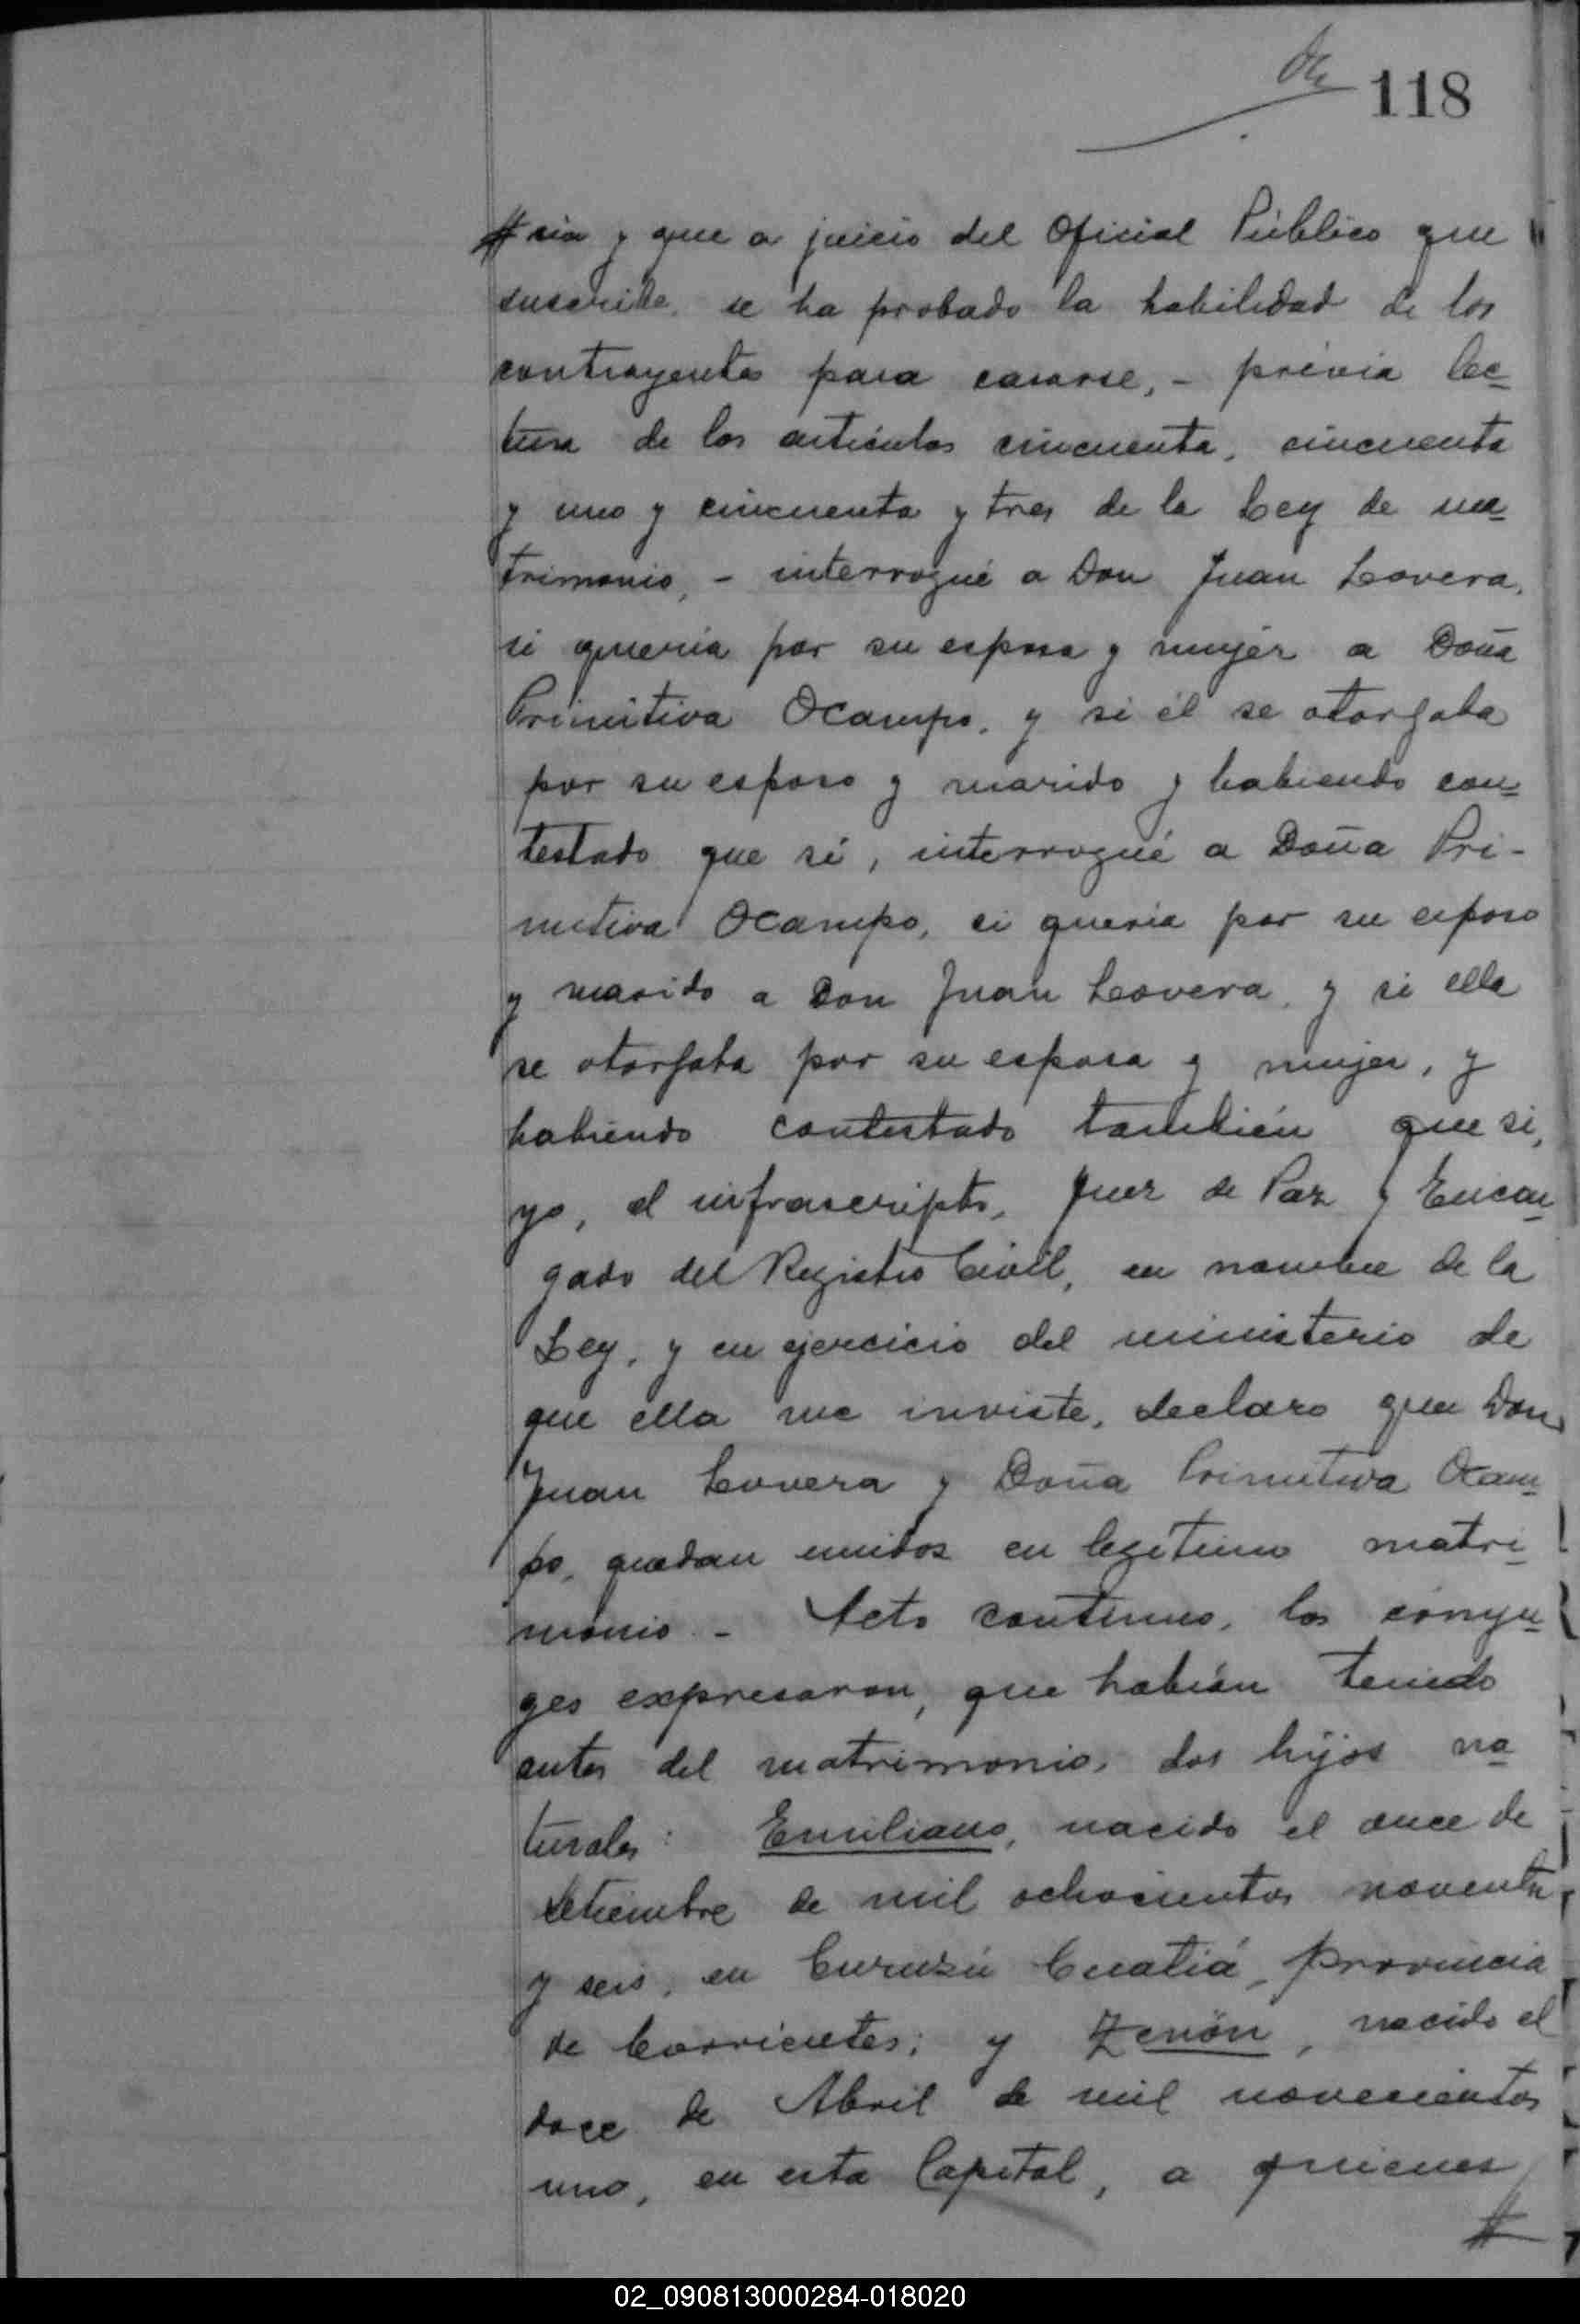 118
# sia y que a juicio del Oficial Público que
suscribe, se ha probado la habilidad de los
contrayentes para casarse, - prévia lec=
tura de los artículos cincuenta, cincuenta
y uno y cincuenta y tres de la Ley de ma=
trimonio, - interrogué a Don Juan Lovera,
si quería por su esposa y mujer a Doña
Primitiva Ocampo, y si él se otorgaba
por su esposo y marido y habiendo con=
testado que sí, interrogué a Doña Pri-
mitiva Ocampo, si quería por su esposo
y marido a Don Juan Lovera, y si ella
se otorgaba por su esposa y mujer, y
habiendo contestado también que si,
yo, el infrascripto, Juez de Paz y Encar=
gado del Registro Civil, en nombre de la
Ley, y en ejercicio del ministerio de
que ella me inviste, declaro que Don
Juan Lovera y Doña Primitiva Ocam=
po, quedan unidos en legítimo matri=
monio - Acto contínuo, los cónyu=
ges expresaron, que habían tenido
antes del matrimonio, dos hijos na=
turales: Emiliano, nacido el once de
Setiembre de mil ochocientos noventa
y seis, en Curuzú Cuatiá, provincia
de Corrientes; y Zenón, nacido el
doce de Abril de mil novecientos
uno, en esta Capital, a quienes
#
02_090813000284-018020